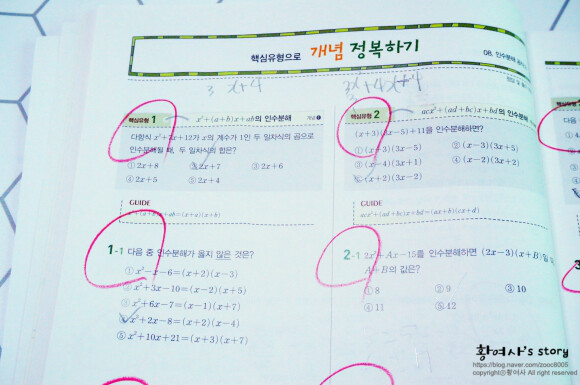 핵심유형으로 개념 정복하기
08. 인수분해
3 x+4
핵심유형 1
x²+(a+b)x+ab의 인수분해
다항식 x²+7x+12가 x의 계수가 1인 두 일차식의 곱으로
인수분해될 때, 두 일차식의 합은?
① 2x+8 ② 2x+7 ③ 2x+6
④ 2x+5 ⑤ 2x+4
GUIDE
x²+(a+b)x+ab=(x+a)(x+b)
1-1 다음 중 인수분해가 옳지 않은 것은?
① x²-x-6=(x+2)(x-3)
② x²+3x-10=(x-2)(x+5)
③ x²+6x-7=(x-1)(x+7)
④ x²+2x-8=(x+2)(x-4)
⑤ x²+10x+21=(x+3)(x+7)
핵심유형 2
acx²+(ad+bc)x+bd의 인수분해
(x+3)(3x-5)+11을 인수분해하면?
① (x-2)(3x+2) ② (x-3)(3x+5)
③ (x-4)(3x+1) ④ (x-2)(3x+2)
⑤ (x+2)(3x-2)
GUIDE
acx²+(ad+bc)x+bd=(ax+b)(cx+d)
2-1 2x²+Ax-15를 인수분해하면 (2x-3)(x+B)일 때,
A+B의 값은?
① 8 ② 9 ③ 10
④ 11 ⑤ 12
황여사's story
https://blog.naver.com/zooc8005
copyrightⓒ황여사 All right reserved